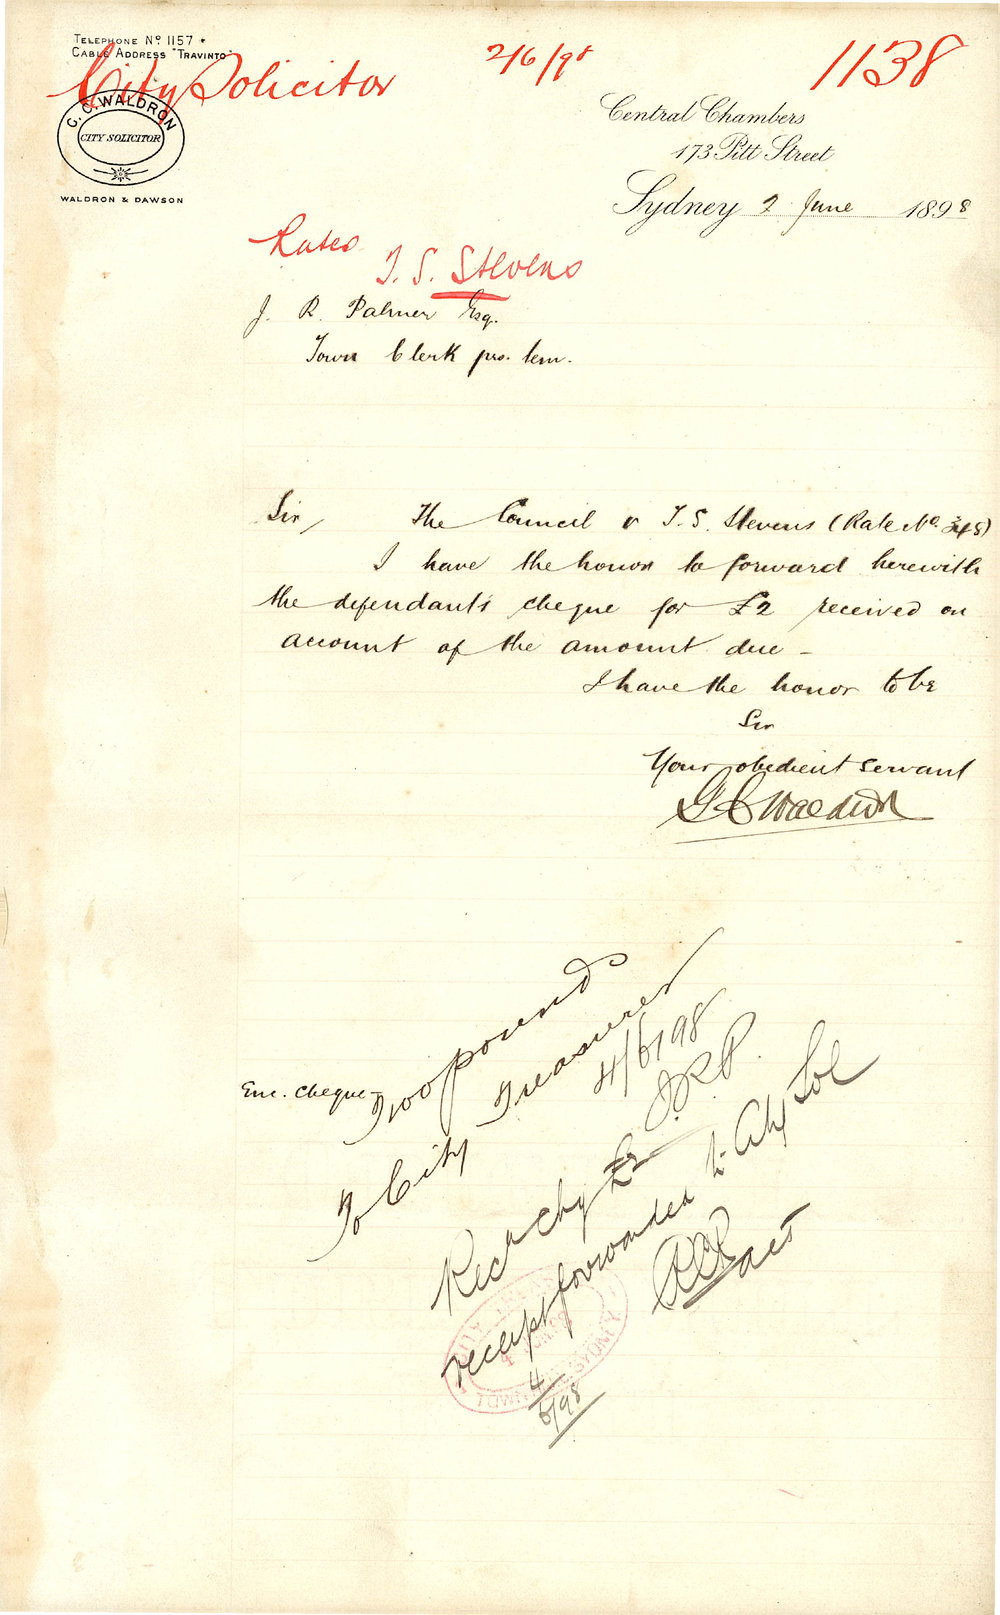 TELEPHONE Nº 1157
CABLE ADDRESS "TRAVINTO"
City Solicitor
2/6/98
1138
G. C. WALDRON
CITY SOLICITOR
WALDRON & DAWSON
Central Chambers
173 Pitt Street
Sydney 2 June 1898
Rates
T. S. Stevens
J. R. Palmer Esq.
Town Clerk pro. tem.
Sir, The Council v T. S. Stevens (Rate No. 348)
I have the honor to forward herewith
the defendant's cheque for £2 received on
account of the amount due –
I have the honor to be
Sir
Your obedient servant
G C Waldron
Enc. cheque
Two pounds
To City Treasurer
4/6/98
J.R.P.
Recd Chq £2
receipt forwarded to City Sol
4/6/98
TOWN SYDNEY